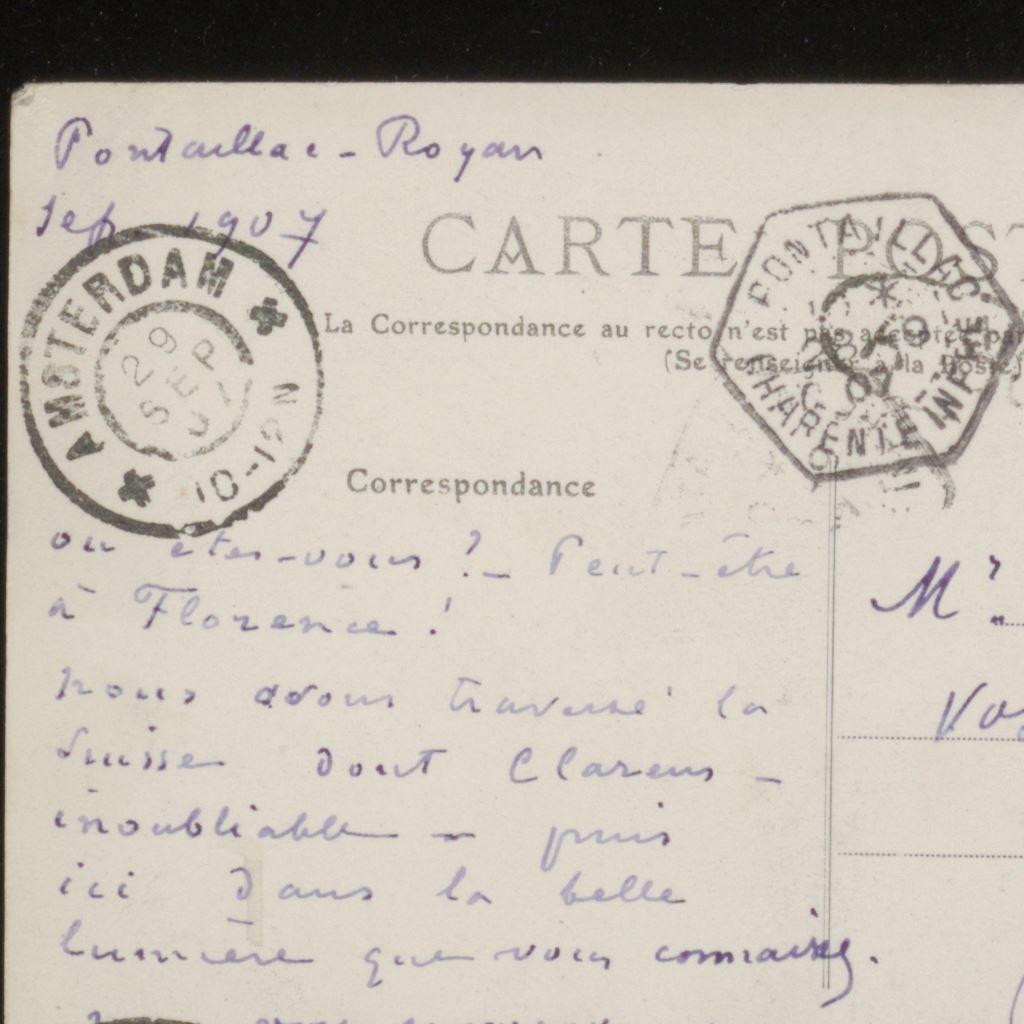 Pontaillac - Royan
Sep 1907
CARTE POST
La Correspondance au recto n'est pas acceptée par
(Se renseigner à la Poste)
AMSTERDAM
29
SEP
07
10-12N
PONTAILLAC
CHARENTE INFRE
07
Correspondance
où êtes-vous ? - Peut-être
à Florence !
nous avons traversé la
Suisse dont Clarens -
inoubliable - puis
ici dans la belle
lumière que vous connaissez.
Mr.